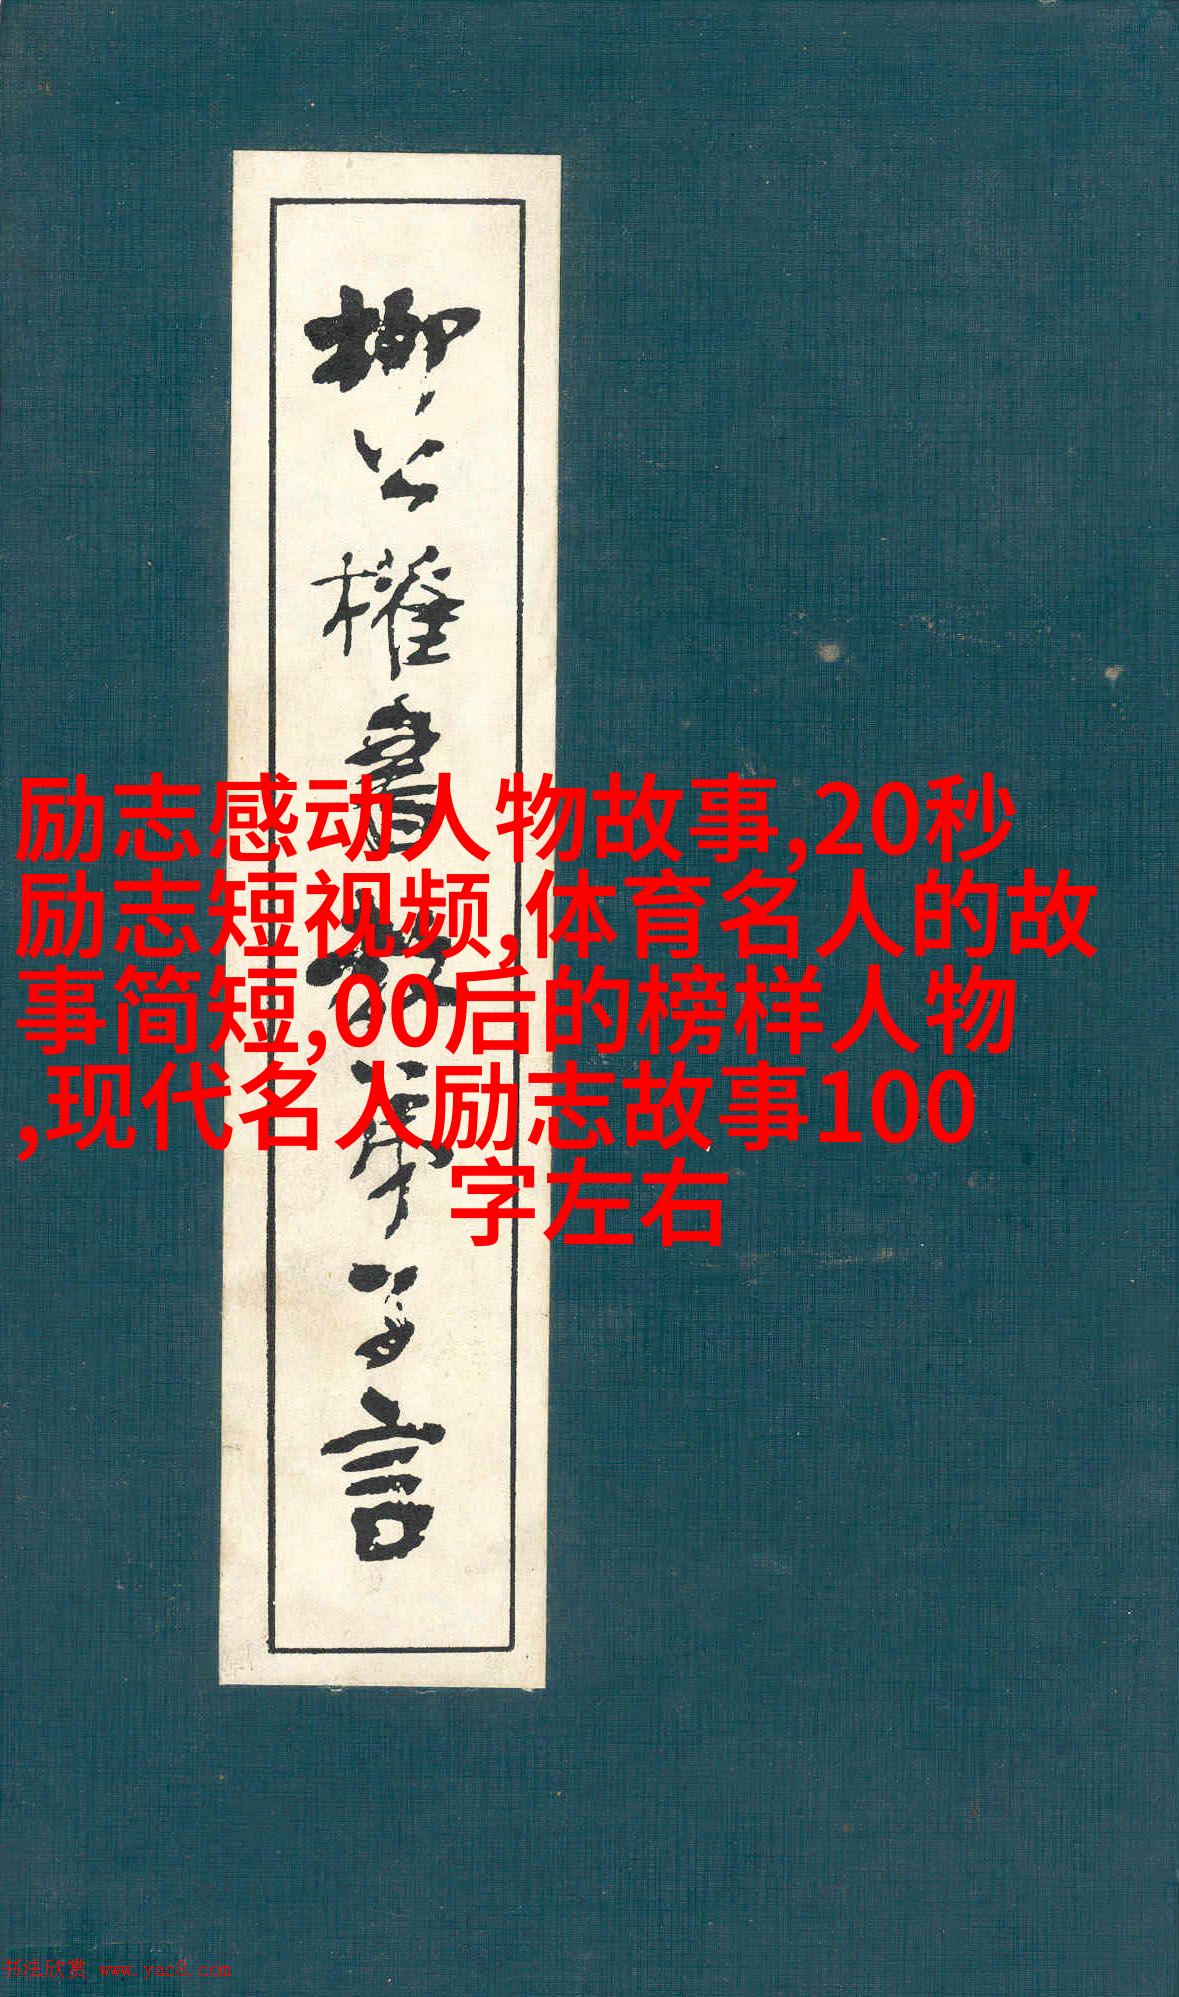 柳公權書教弟子言
励志感动人物故事,20秒
励志短视频,体育名人的故
事简短,00后的榜样人物
,现代名人励志故事100
字左右
书法欣赏 www.yac8.com